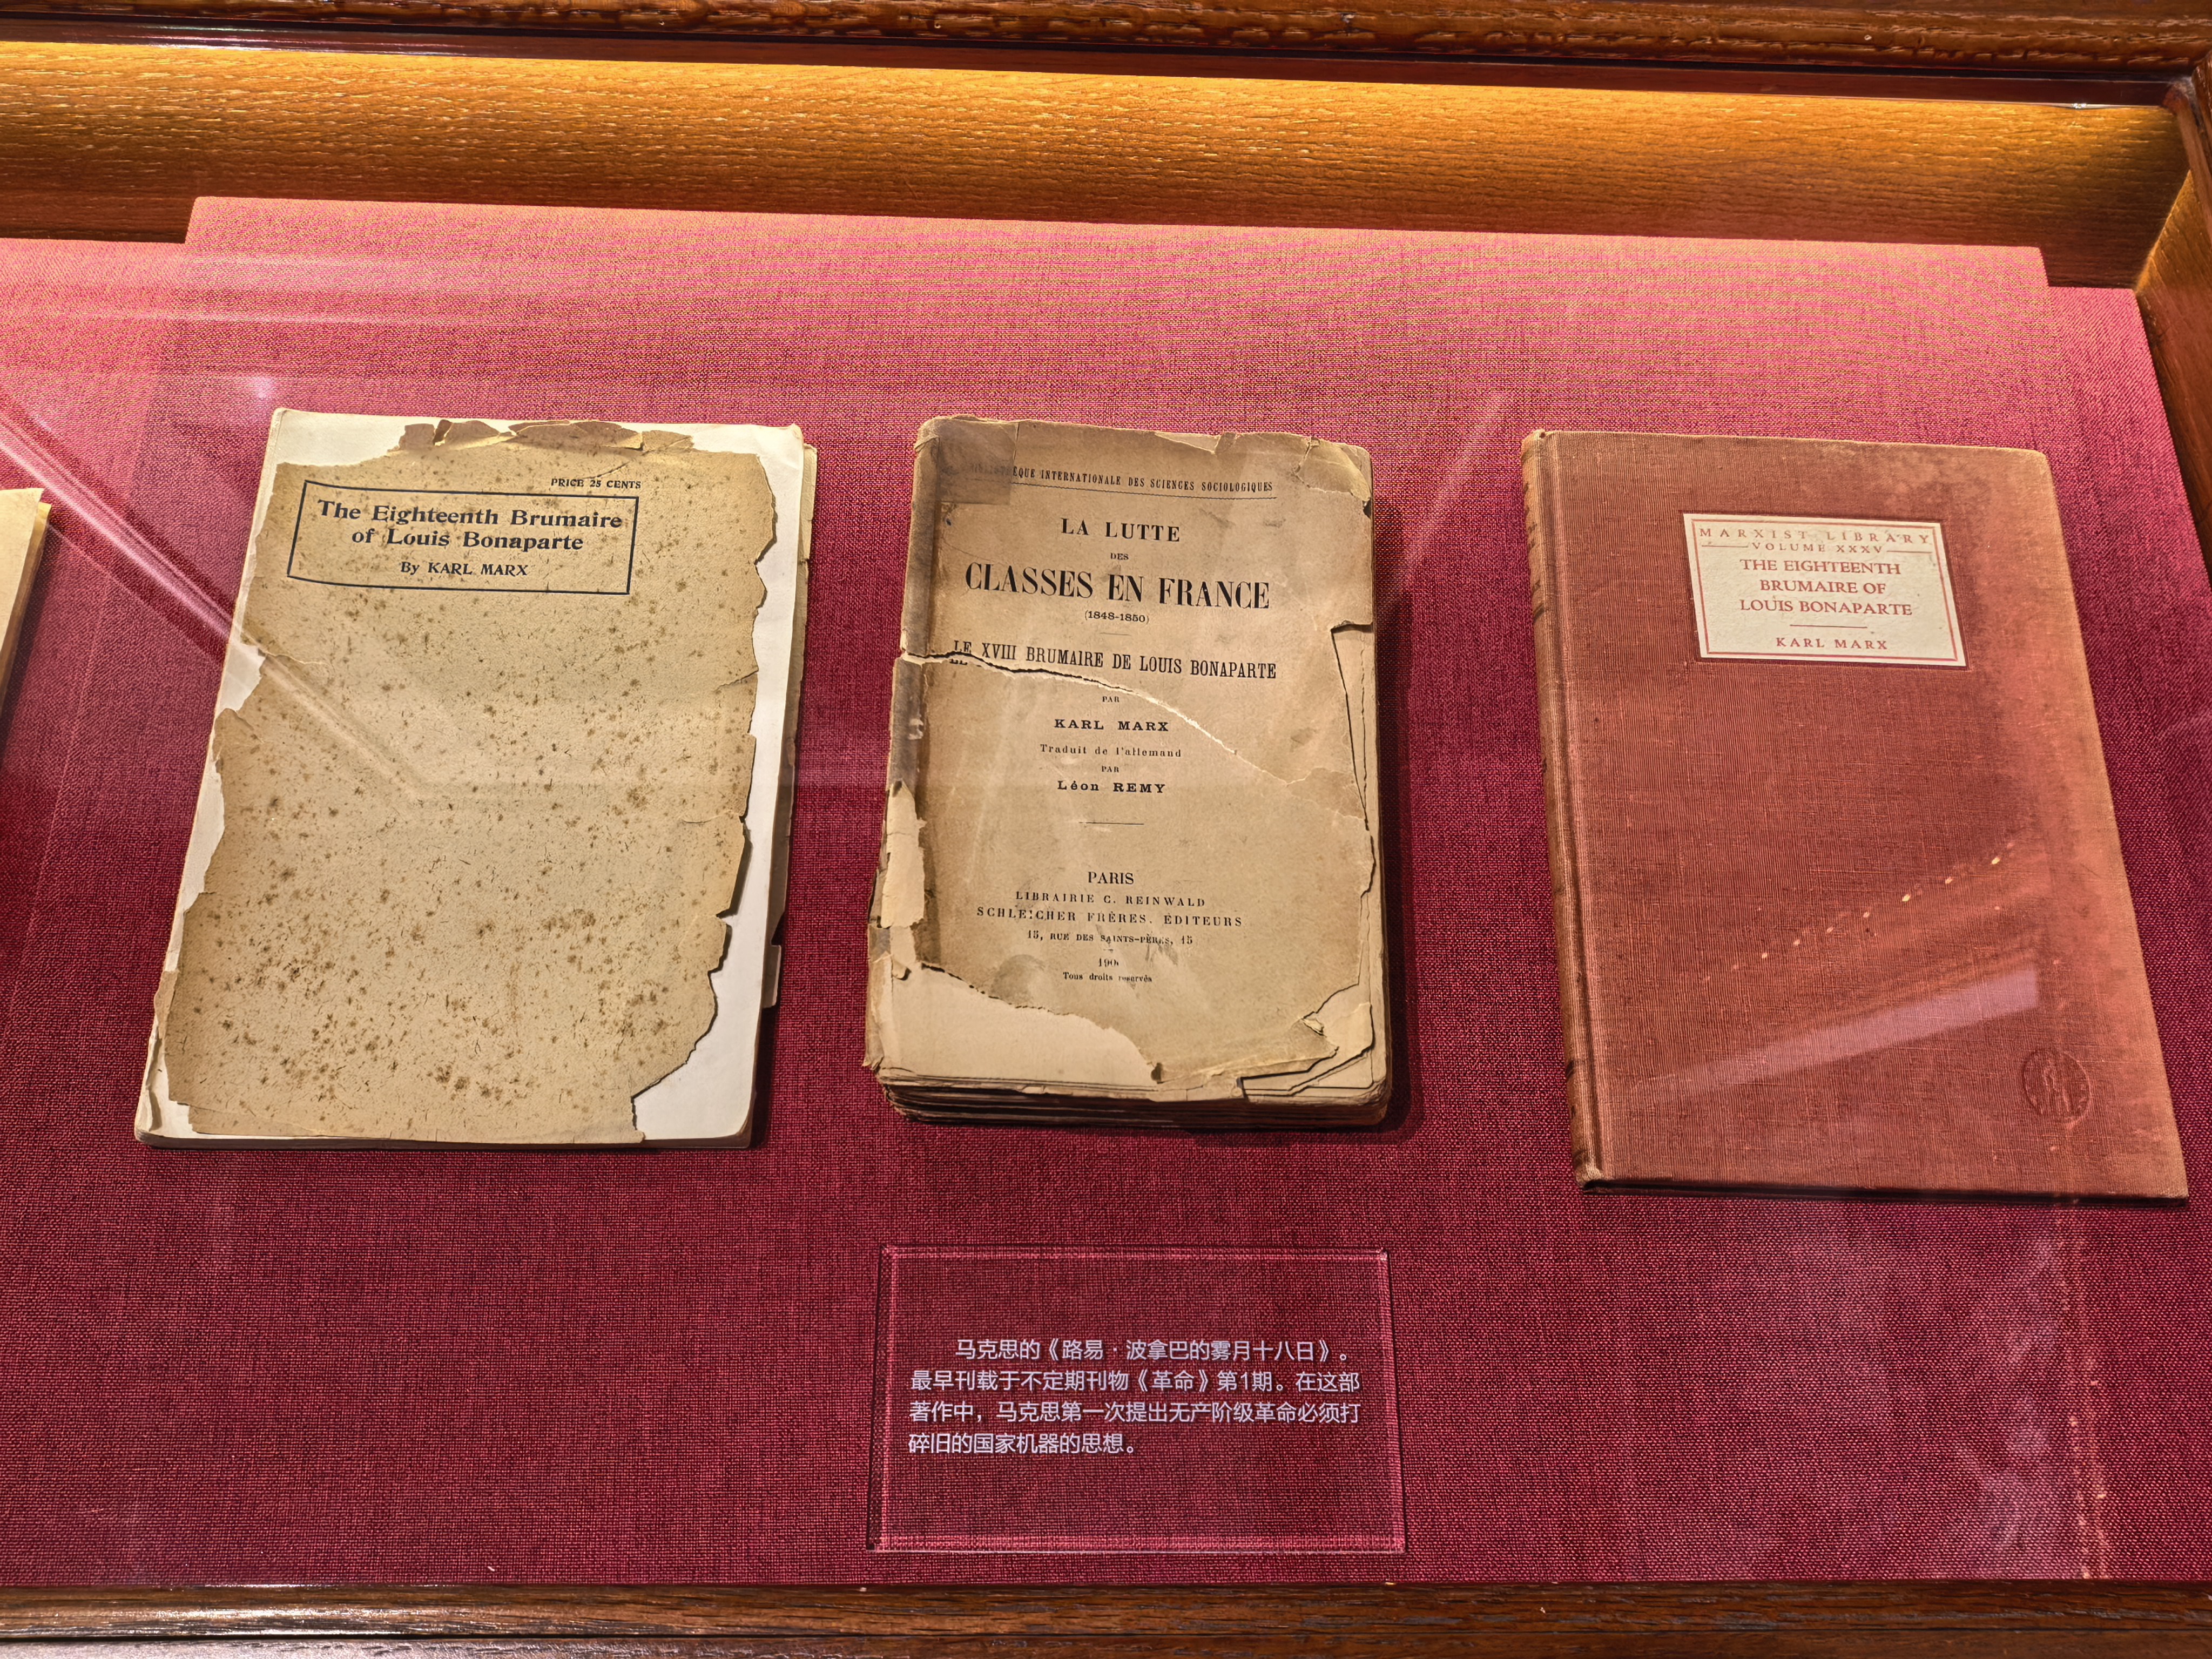 PRICE 25 CENTS
The Eighteenth Brumaire
of Louis Bonaparte
By KARL MARX
INTERNATIONALE DES SCIENCES SOCIOLOGIQUES
LA LUTTE
DES
CLASSES EN FRANCE
(1848-1850)
LE XVIII BRUMAIRE DE LOUIS BONAPARTE
PAR
KARL MARX
Traduit de l'allemand
PAR
Léon REMY
PARIS
LIBRAIRIE C. REINWALD
SCHLEICHER FRÈRES, ÉDITEURS
15, RUE DES SAINTS-PÈRES, 15
Tous droits reservés
MARXIST LIBRARY
VOLUME XXXV
THE EIGHTEENTH
BRUMAIRE OF
LOUIS BONAPARTE
KARL MARX
马克思的《路易·波拿巴的雾月十八日》。
最早刊载于不定期刊物《革命》第1期。在这部
著作中，马克思第一次提出无产阶级革命必须打
碎旧的国家机器的思想。